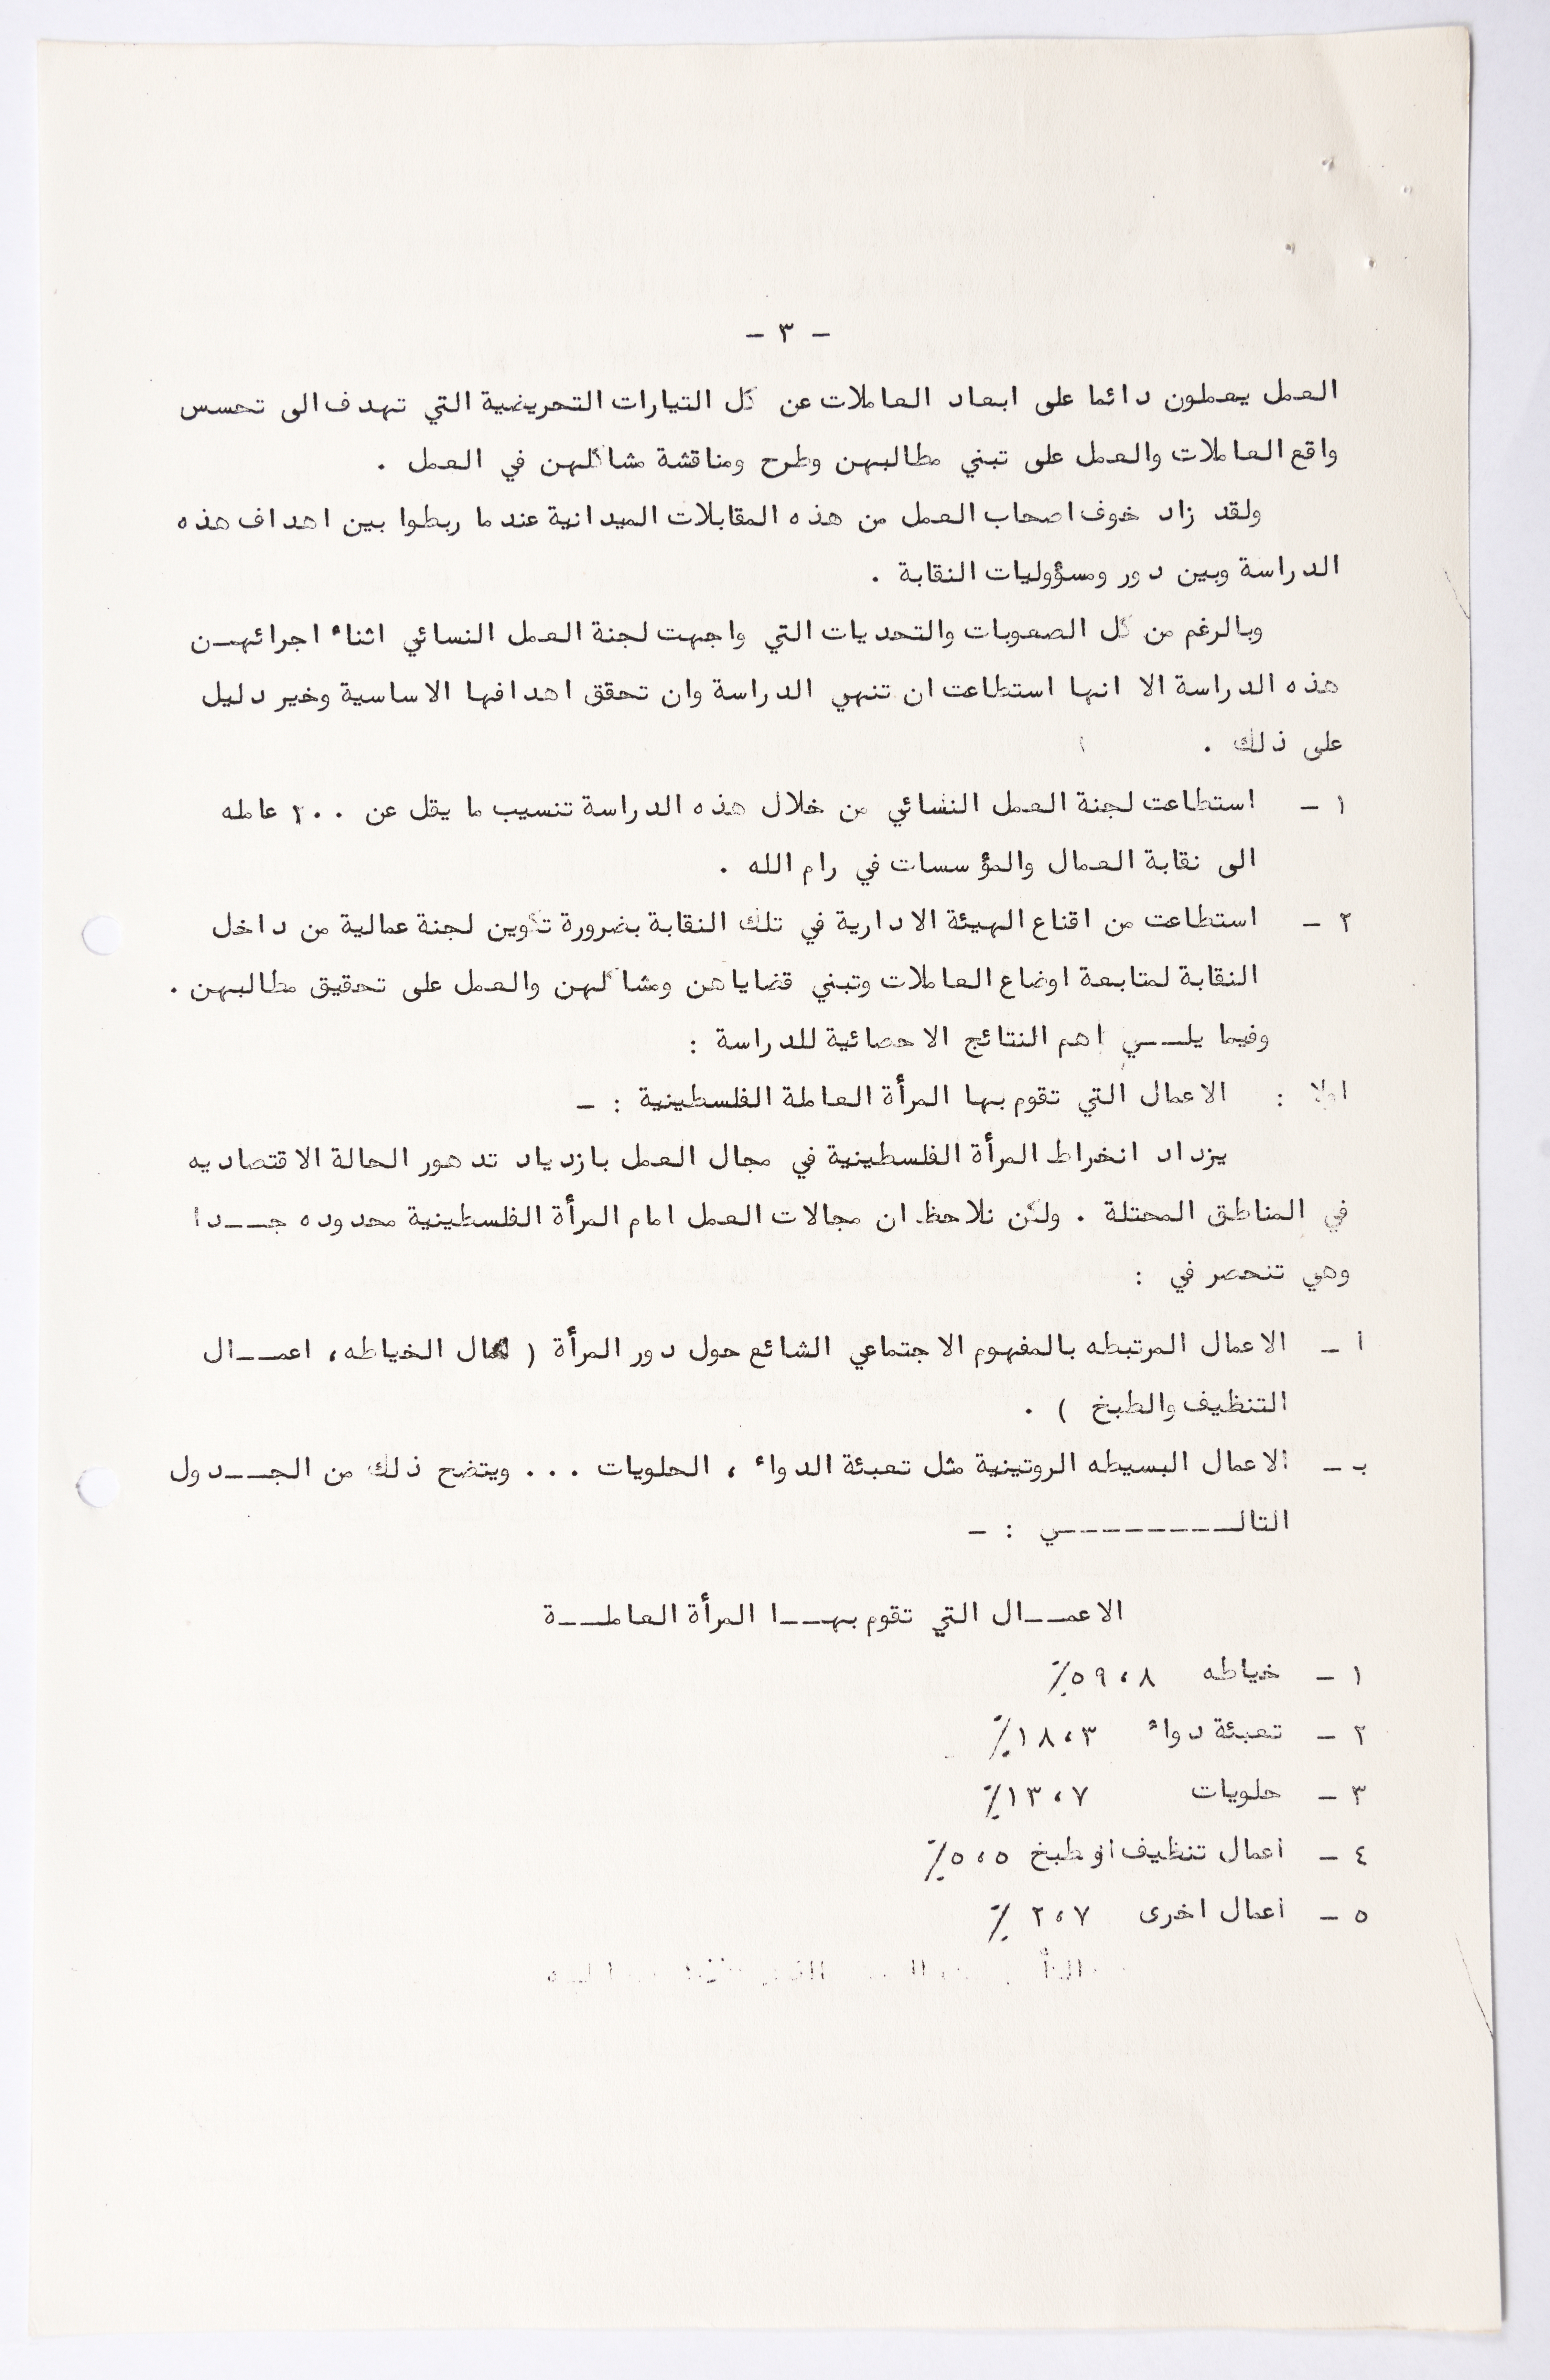 - ٣ -
العمل يعملون دائما على ابعاد العاملات عن كل التيارات التحريضية التي تهدف الى تحسس
واقع العاملات والعمل على تبني مطالبهن وطرح ومناقشة مشاكلهن في العمل .
ولقد زاد خوف اصحاب العمل من هذه المقابلات الميدانية عندما ربطوا بين اهداف هذه
الدراسة وبين دور ومسؤوليات النقابة .
وبالرغم من كل الصعوبات والتحديات التي واجهت لجنة العمل النسائي اثناء اجرائهـــن
هذه الدراسة الا انها استطاعت ان تنهي الدراسة وان تحقق اهدافها الاساسية وخير دليل
على ذلك .
١ - استطاعت لجنة العمل النسائي من خلال هذه الدراسة تنسيب ما يقل عن ٢٠٠ عامله
الى نقابة العمال والمؤسسات في رام الله .
٢ - استطاعت من اقناع الهيئة الادارية في تلك النقابة بضرورة تكوين لجنة عمالية من داخل
النقابة لمتابعة اوضاع العاملات وتبني قضاياهن ومشاكلهن والعمل على تحقيق مطالبهن .
وفيما يلـــي اهم النتائج الاحصائية للدراسة :
اولا : الاعمال التي تقوم بها المرأة العاملة الفلسطينية : -
يزداد انخراط المرأة الفلسطينية في مجال العمل بازدياد تدهور الحالة الاقتصاديه
في المناطق المحتلة . ولكن نلاحظ ان مجالات العمل امام المرأة الفلسطينية محدوده جـــدا
وهي تنحصر في :
ا - الاعمال المرتبطه بالمفهوم الاجتماعي الشائع حول دور المرأة ( الخياطه، اعمـــال
التنظيف والطبخ ) .
بـ - الاعمال البسيطه الروتينية مثل تعبئة الدواء ، الحلويات ... ويتضح ذلك من الجـــدول
التالـــــــــــــي : -
الاعمـــال التي تقوم بهـــا المرأة العاملـــة
١ - خياطه ٥٩،٨٪
٢ - تعبئة دواء ١٨،٣٪
٣ - حلويات ١٣،٧٪
٤ - اعمال تنظيف او طبخ ٥،٥٪
٥ - اعمال اخرى ٢،٧ ٪